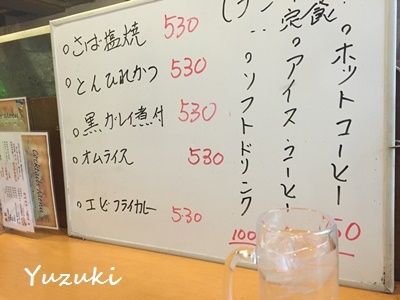 ○さば塩焼 530
○とんひれかつ 530
○黒ガレイ煮付 530
○オムライス 530
○エビフライカレー 530
○ホットコーヒー
○アイスコーヒー
○ソフトドリンク
100
50
Yuzuki